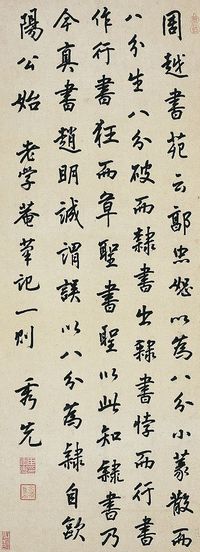 周越書苑云郭忠恕以為八分小篆散而
八分生八分破而隸書出隸書悖而行書
作行書狂而草聖書聖以此知隸書乃
今真書趙明誠謂誤以八分為隸自歐
陽公始 老学菴筆記一則 秀先